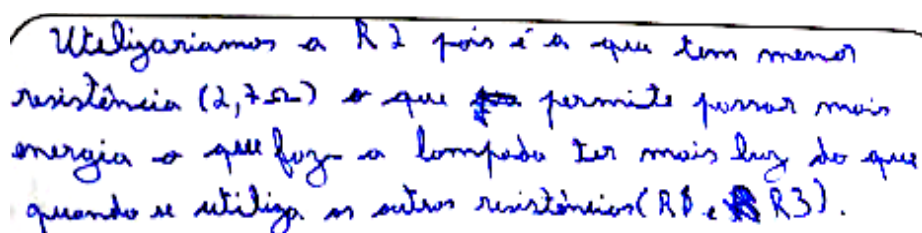 Utilizariamos a R2 pois é a que tem menor
resistência (2,7Ω) o que permite passar mais
energia o que faz a lampada ter mais luz do que
quando se utiliza as outras resistências (R1 e R3).